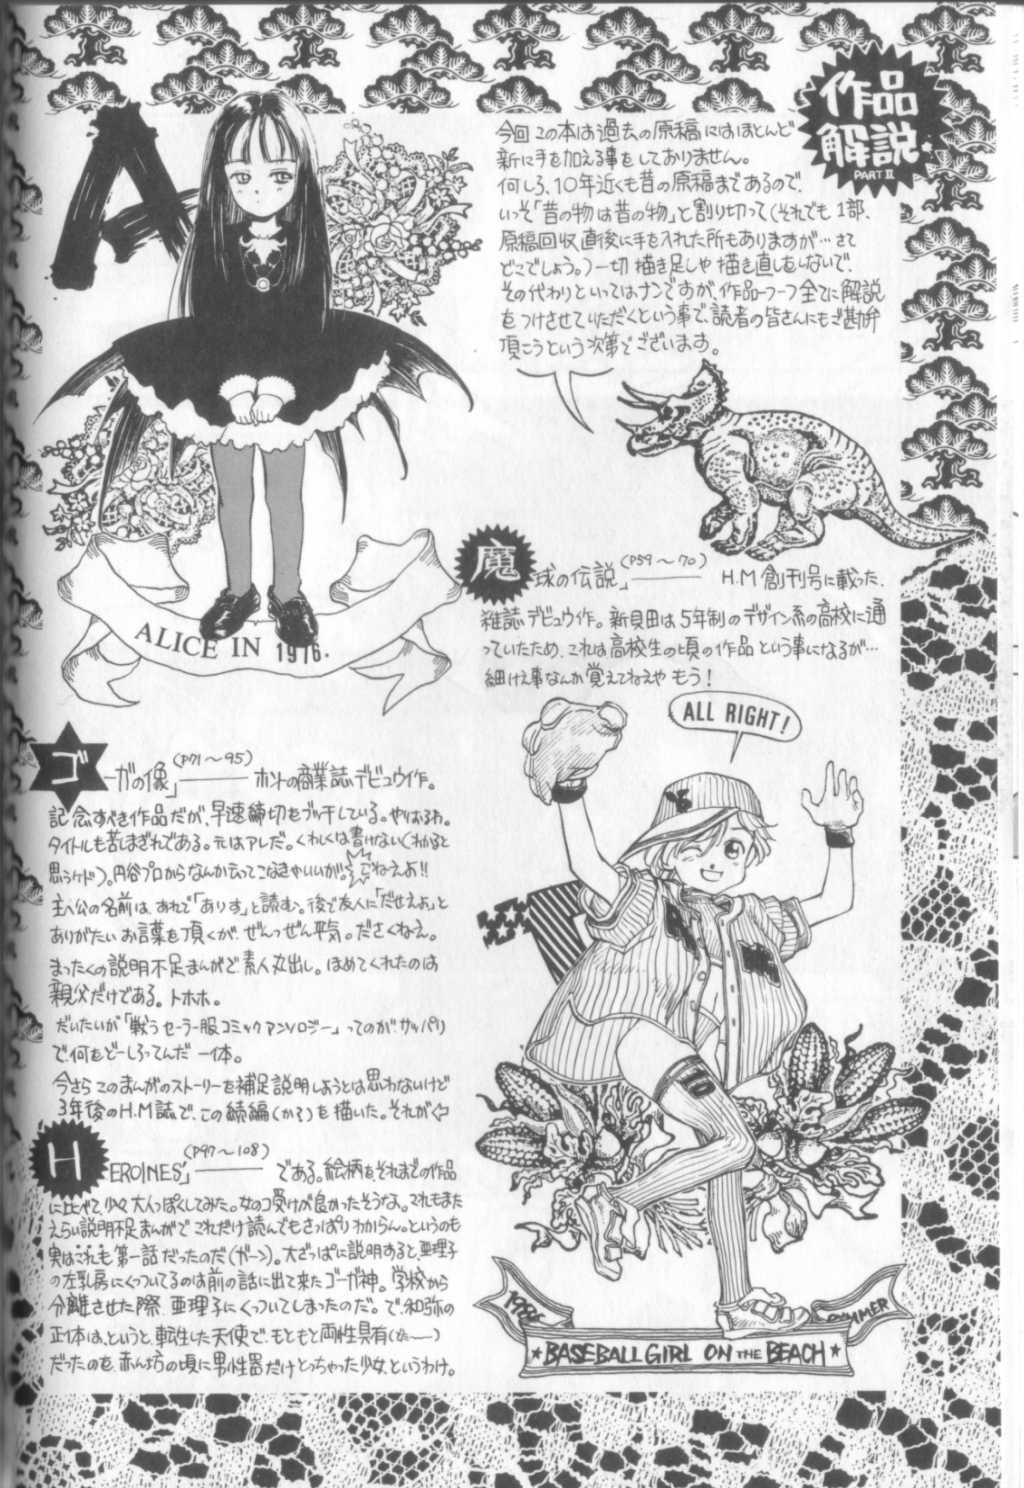 作品
解説
PART II
今回この本は過去の原稿にはほとんど
新に手を加える事をしておりません。
何しろ、10年近くも昔の原稿まであるので、
いっそ「昔の物は昔の物」と割り切って(それでも1部、
原稿回収直後に手を入れた所もありますが…さて
どこでしょう。)一切描き足しや描き直しをしないで、
その代わりといってはナンですが、作品一つ一つ全てに解説
をつけさせていただくという事で、読者の皆さんにもご勘弁
頂こうという次第でございます。
A
ALICE IN 1976.
魔球の伝説」(P59～70)――― H.M創刊号に載った、
雑誌デビュウ作。新貝田は5年制のデザイン系の高校に通
っていたため、これは高校生の頃の作品という事になるが…
細けえ事なんか覚えてねえや もう!
ALL RIGHT!
1986
SUMMER
★BASEBALL GIRL ON THE BEACH★
ゴーガの像」(P71～95)――― ホントの商業誌デビュウ作。
記念すべき作品だが、早速締切をブッ千している。やりおるわ。
タイトルも苦しまぎれである。元はアレだ。くわしくは書けない(わかると
思うケド)。円谷プロからなんか云ってこなきゃいいが。こねえよ!!
主人公の名前は、あれで「ありす」と読む。後で友人に「だせえよ」と
ありがたいお言葉を頂くが、ぜんっぜん平気。ださくねえ。
まったくの説明不足まんがで素人丸出し。ほめてくれたのは
親父だけである。トホホ。
だいたいが「戦うセーラー服コミックアンソロジー」ってのがサッパリ
で何をどーしろってんだ 一体。
今さらこのまんがのストーリーを補足説明しようとは思わないけど
3年後のH.M誌で、この続編(か?)を描いた。それが
HEROINES」(P97～108)――― である。絵柄をそれまでの作品
に比べて、少々大人っぽくしてみた。女のコ受けが良かったそうな。これもまた
えらい説明不足まんがでこれだけ読んでもさっぱりわからん。というのも
実はこれも第一話だったのだ(ガーン)。大ざっぱに説明すると、亜理子
の左乳房にくっついてるのは前の話に出て来たゴーガ神。学校から
分離させた際、亜理子にくっついてしまったのだ。で和弥の
正体は、というと、転生した天使で、もともと両性具有
だったのを赤ん坊の頃に男性器だけとっちゃった少女、というわけ。